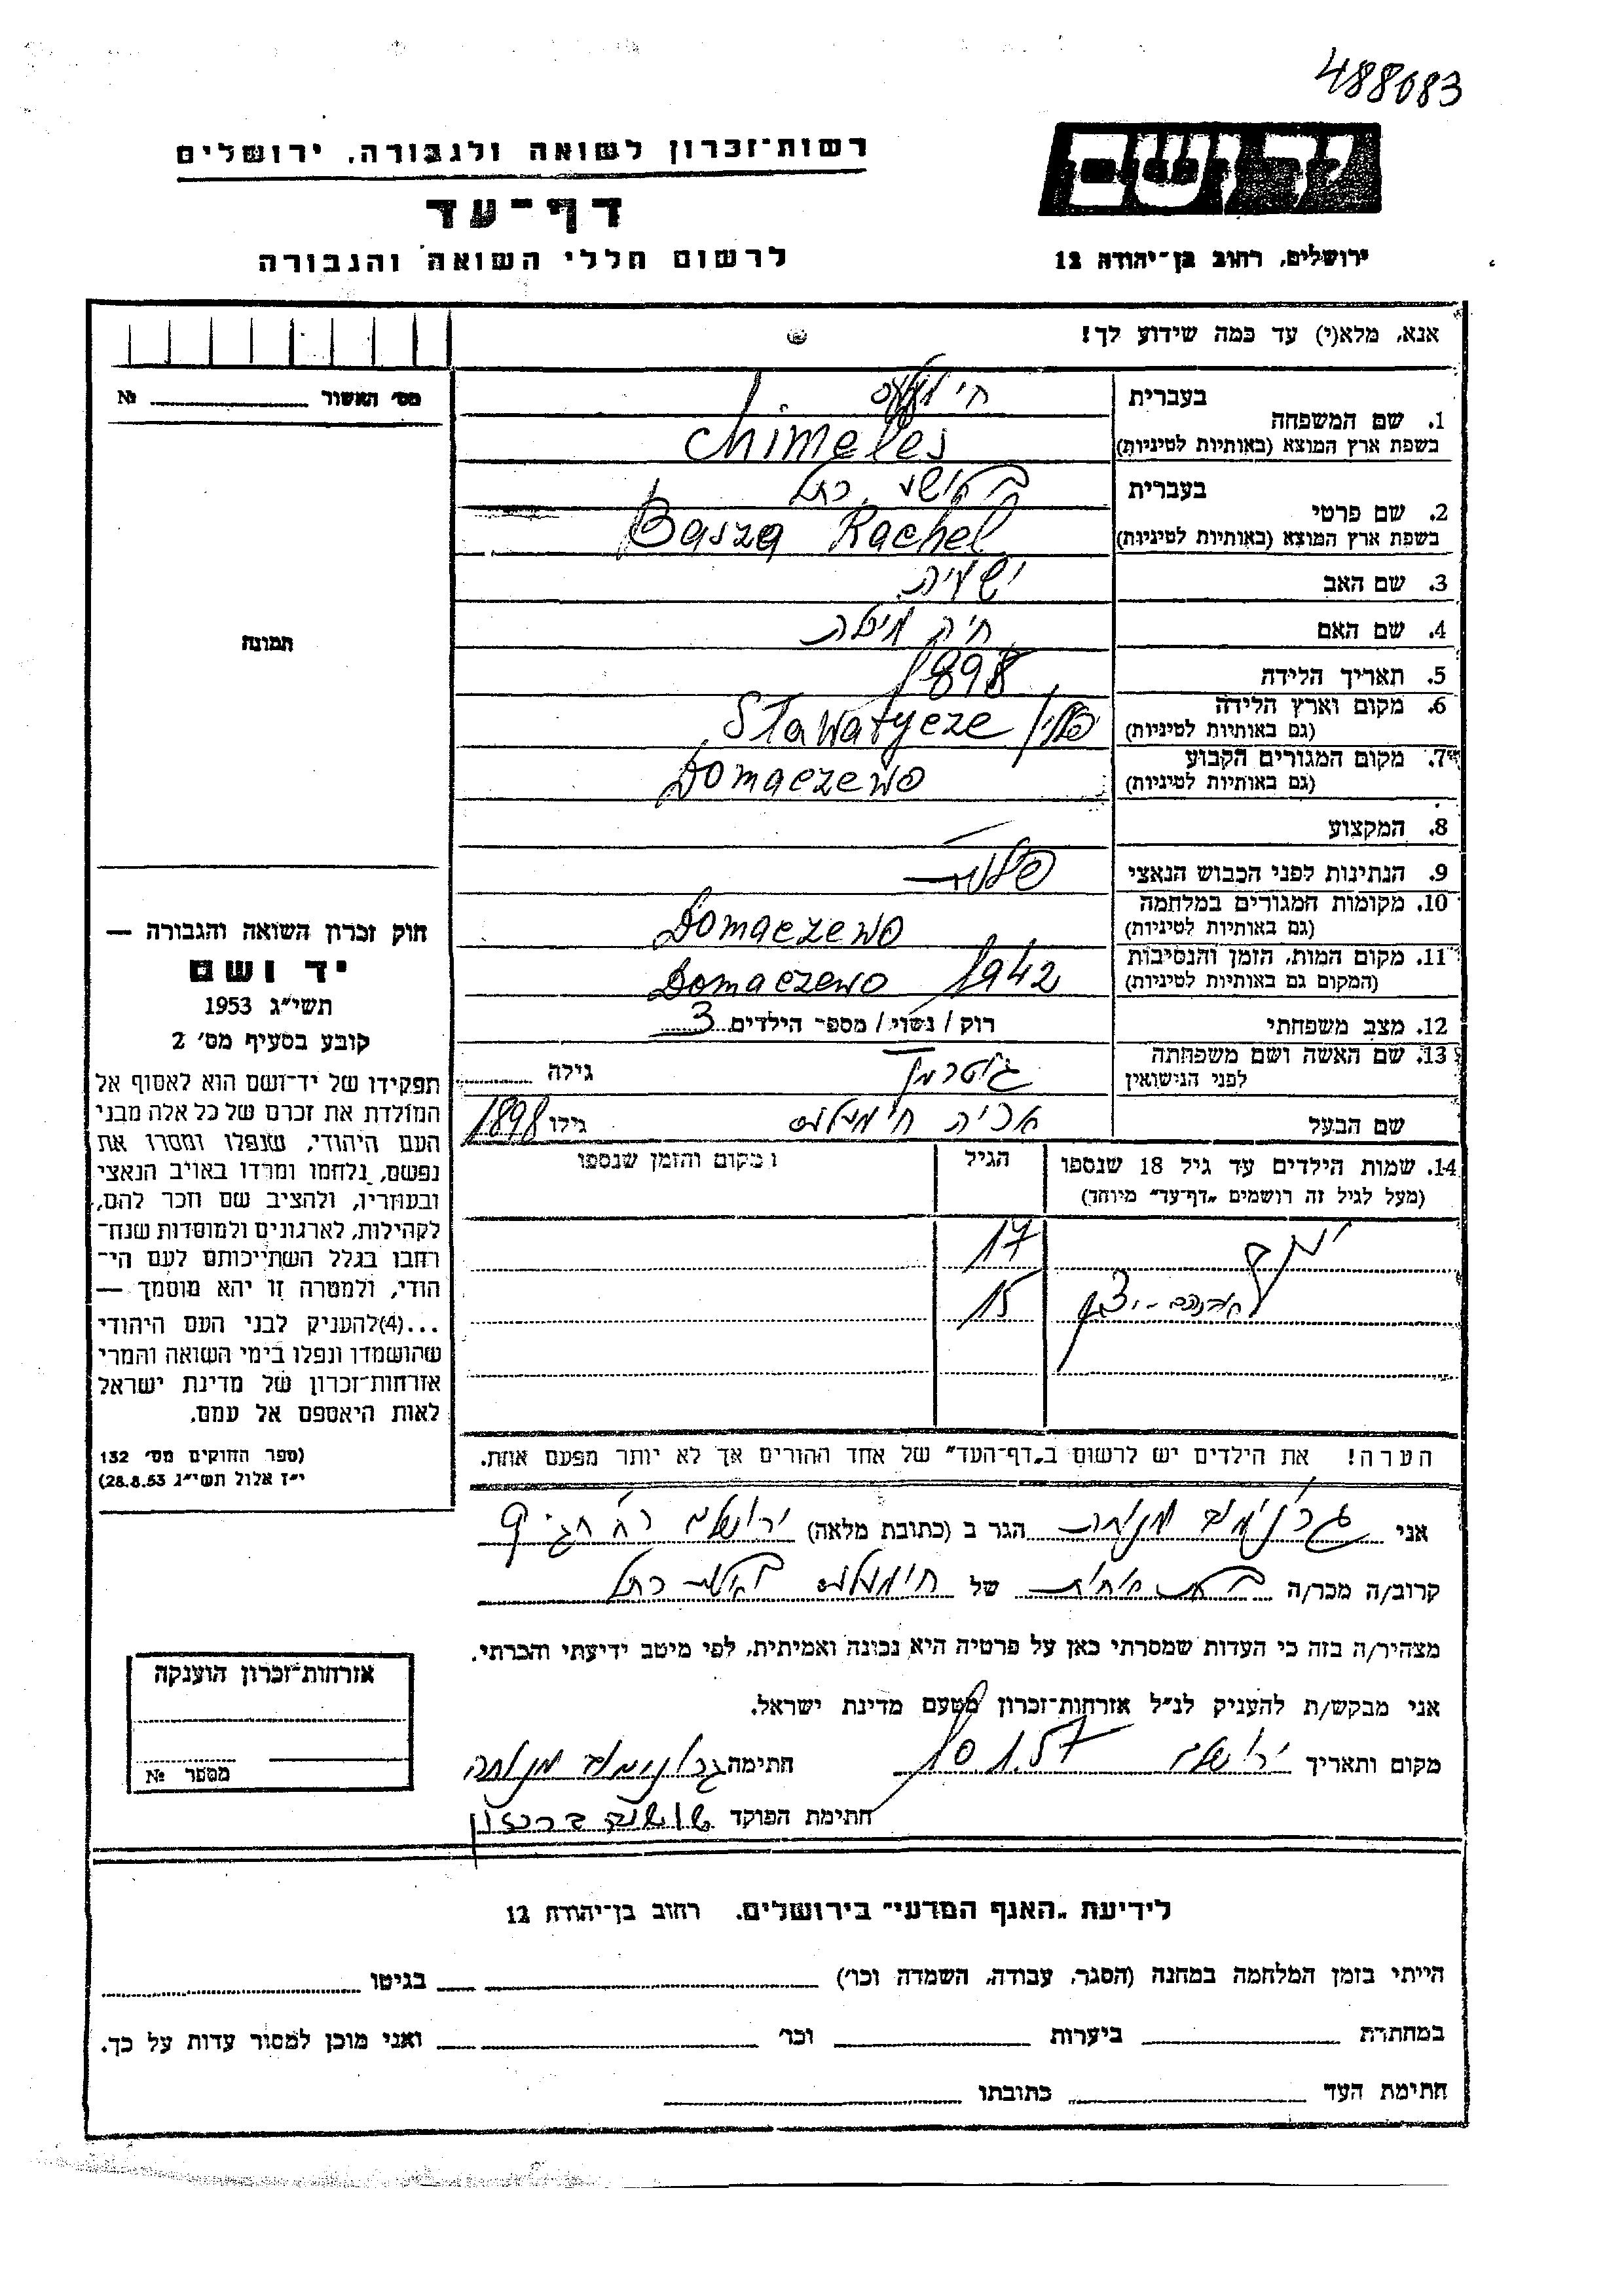 488083
יד ושם
רשות־זכרון לשואה ולגבורה, ירושלים
דף־עד
לרשום חללי השואה והגבורה
ירושלים, רחוב בן־יהודה 12
אנא, מלא(י) עד כמה שידוע לך!
מס' האשור №
תמונה
1. שם המשפחה
בעברית חימלס
בשפת ארץ המוצא (באותיות לטיניות) Chimeles
2. שם פרטי
בעברית רחל
בשפת ארץ המוצא (באותיות לטיניות) Basza Rachel
3. שם האב ישעיה
4. שם האם חיה
5. תאריך הלידה 1898
6. מקום וארץ הלידה (גם באותיות לטיניות) פולין Stawatycze
7. מקום המגורים הקבוע (גם באותיות לטיניות) Domaczewo
8. המקצוע
9. הנתינות לפני הכבוש הנאצי פולנית
10. מקומות המגורים במלחמה (גם באותיות לטיניות) Domaczewo
11. מקום המות, הזמן והנסיבות (המקום גם באותיות לטיניות) 1942 Domaczewo
12. מצב משפחתי רוק / נשוי / מספר הילדים 3
13. שם האשה ושם משפחתה לפני הנישואין גוטרמן גילה
שם הבעל אריה חימלס גילו 1898
14. שמות הילדים עד גיל 18 שנספו הגיל ומקום והזמן שנספו
(מעל לגיל זה רושמים „דף־עד" מיוחד)
17
15
הערה! את הילדים יש לרשום ב„דף־העד" של אחד ההורים אך לא יותר מפעם אחת.
חוק זכרון השואה והגבורה —
יד ושם
תשי"ג 1953
קובע בסעיף מס' 2
תפקידו של יד־ושם הוא לאסוף אל
המולדת את זכרם של כל אלה מבני
העם היהודי, שנפלו ומסרו את
נפשם, נלחמו ומרדו באויב הנאצי
ובעוזריו, ולהציב שם וזכר להם,
לקהילות, לארגונים ולמוסדות שנח־
רחבו בגלל השתייכותם לעם הי־
הודי, ולמטרה זו יהא מוסמך —
...(4) להעניק לבני העם היהודי
שהושמדו ונפלו בימי השואה והמרי
אזרחות־זכרון של מדינת ישראל
לאות היאספם אל עמם.
(ספר החוקים מס' 132
י"ז אלול תשי"ג 28.8.53)
אני מנוחה הגר ב (כתובת מלאה) ירושלים רח'
קרוב/ה מכר/ה בת אחות של חימלס באשה רחל
מצהיר/ה בזה כי העדות שמסרתי כאן על פרטיה היא נכונה ואמיתית, לפי מיטב ידיעתי והכרתי.
אני מבקש/ת להעניק לנ"ל אזרחות־זכרון מטעם מדינת ישראל.
מקום ותאריך ירושלים 10.1.57 חתימה מנוחה
חתימת הפוקד שושנה
אזרחות־זכרון הוענקה
מספר №
לידיעת „האגף המדעי" בירושלים, רחוב בן־יהודה 12
הייתי בזמן המלחמה במחנה (הסגר, עבודה, השמדה וכו') בגיטו
במחתרת ביערות וכו' ואני מוכן למסור עדות על כך.
חתימת העד כתובתו